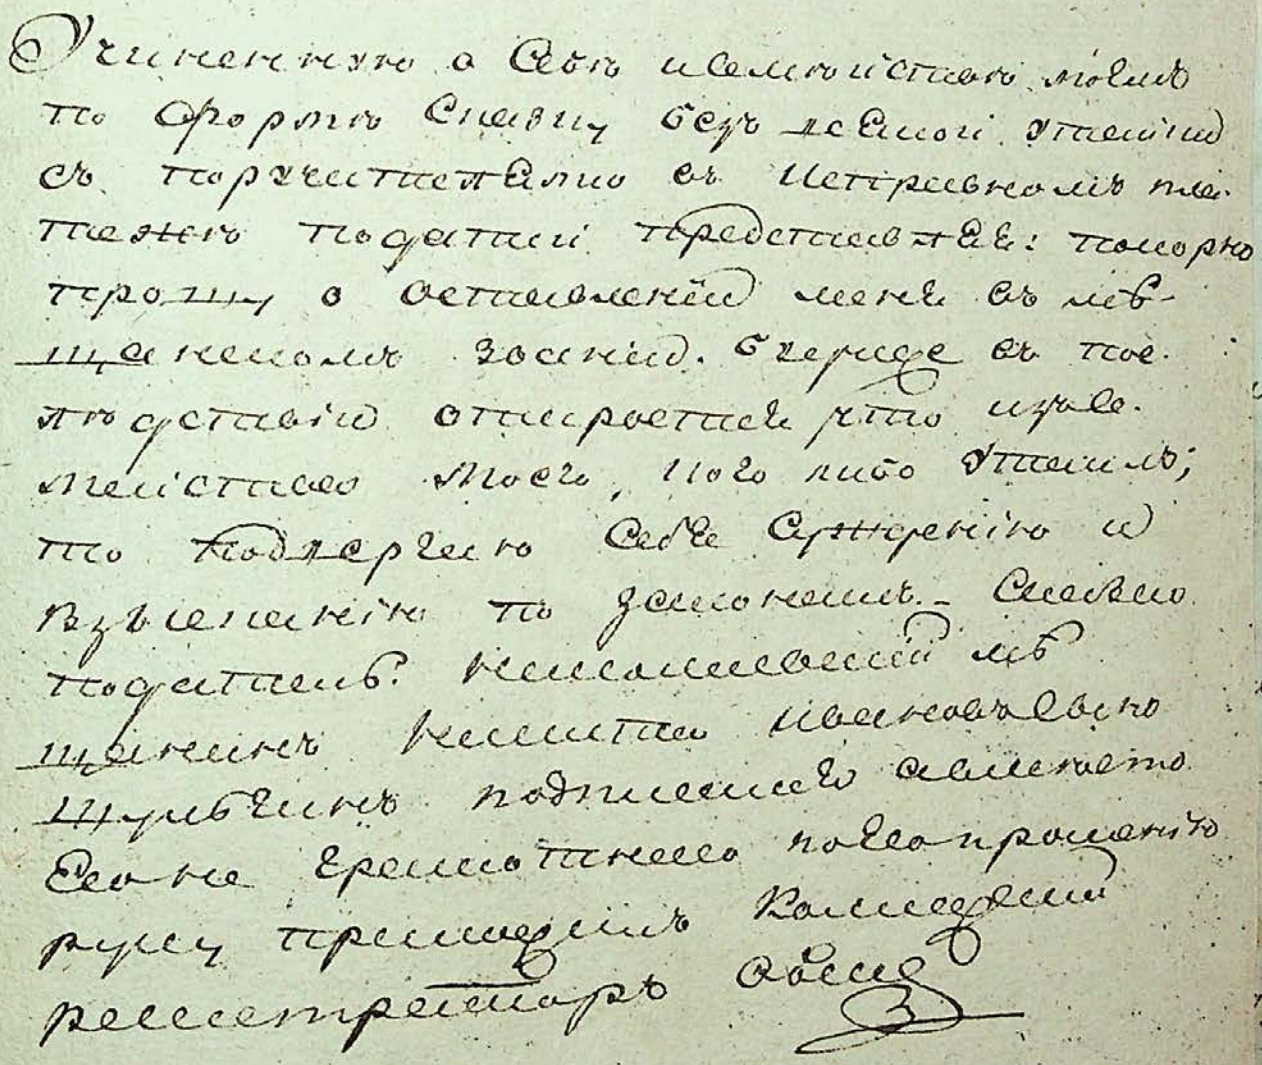 Учиненную о Себѣ и Семѣйствѣ моемъ
по Формѣ Скаску безъ всякой утайки
съ поручителями въ исправномъ пла-
тежѣ податей представляя: покорно
прошу о оставленіи меня въ мѣ-
щанскомъ званіи. буде же въ пос-
лѣдствіи откроется что изъ Се-
мейства моего, кого либо утаилъ;
то подвергаю Себя Сужденію и
взысканію по законамъ. Скаску
подалъ.
щанинъ Никита Ивановъ Сынъ
подписалъ а вмѣсто
Его не грамотнаго по Его прошенію
руку приложилъ Коллежскій
регистраторъ